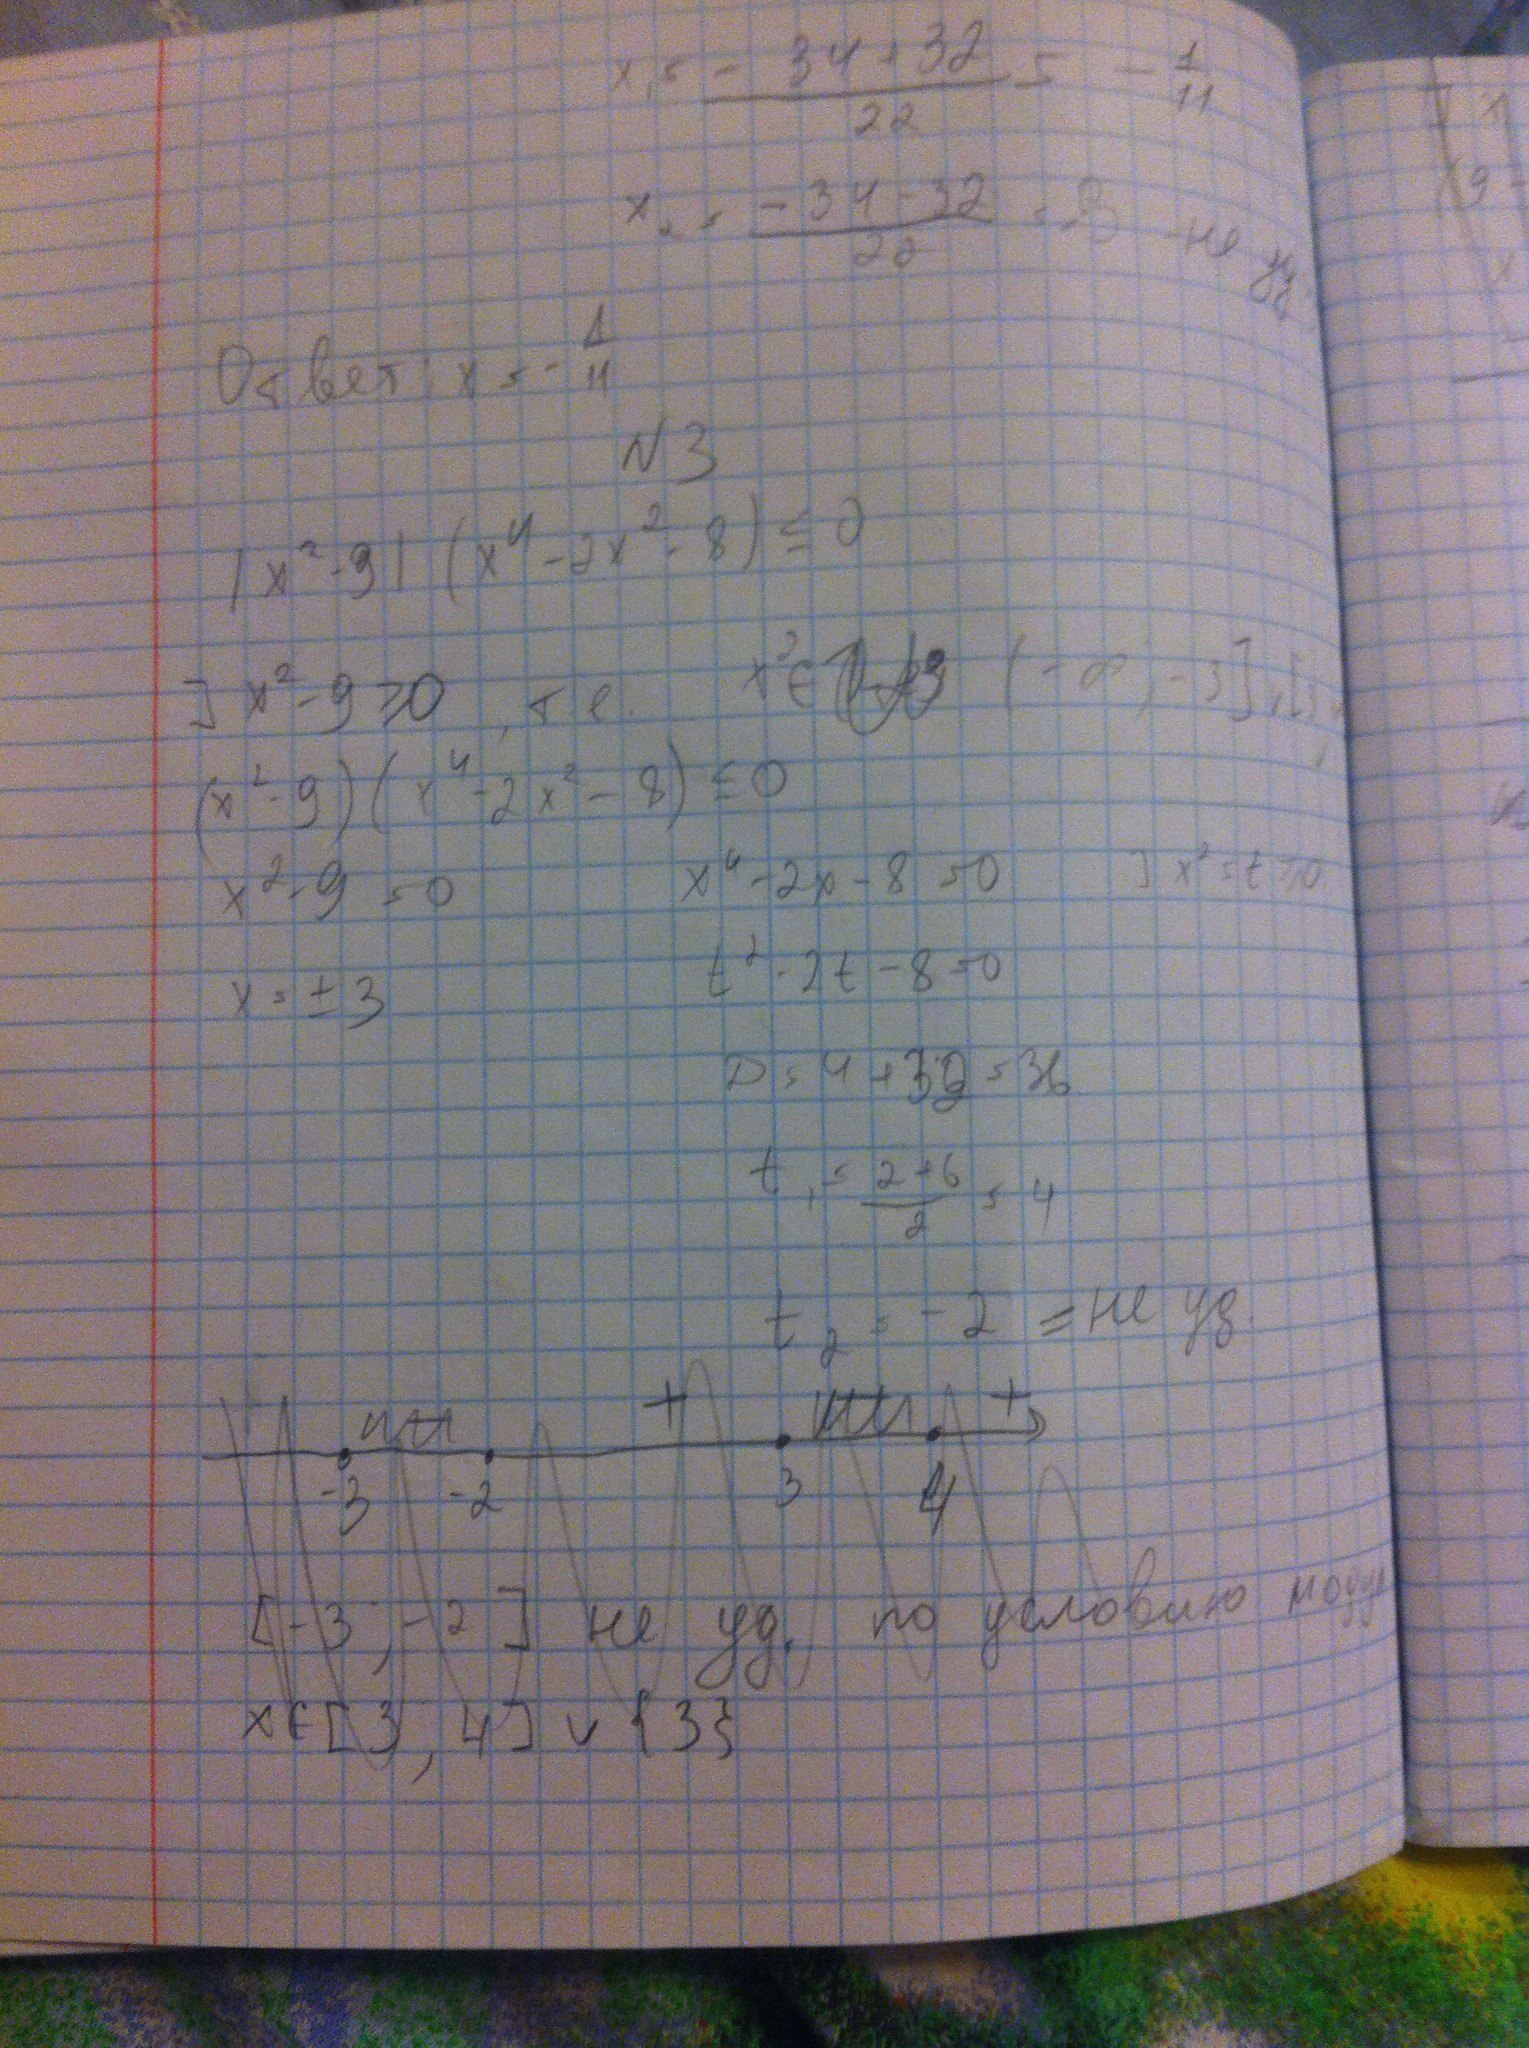 x₁ = - 34+32 / 22 = - 1/11
x₂ = -34-32 / 22 = -3 -не уд.
Ответ: x = - 1/11
N3
|x²-9| (x⁴-2x²-8) ≤ 0
] x²-9 ≥ 0, т.е. x² ∈ (-∞, -3],
(x²-9)(x⁴-2x²-8) ≤ 0
x²-9 = 0 x⁴-2x-8 = 0 ] x² = t ≥ 0
x = ±3 t²-2t-8 = 0
D = 4+32 = 36
t₁ = 2+6 / 2 = 4
t₂ = -2 = не уд.
+ +
-3 -2 3 4
[-3, -2] не уд. по условию
x ∈ [3, 4] ∨ {3}